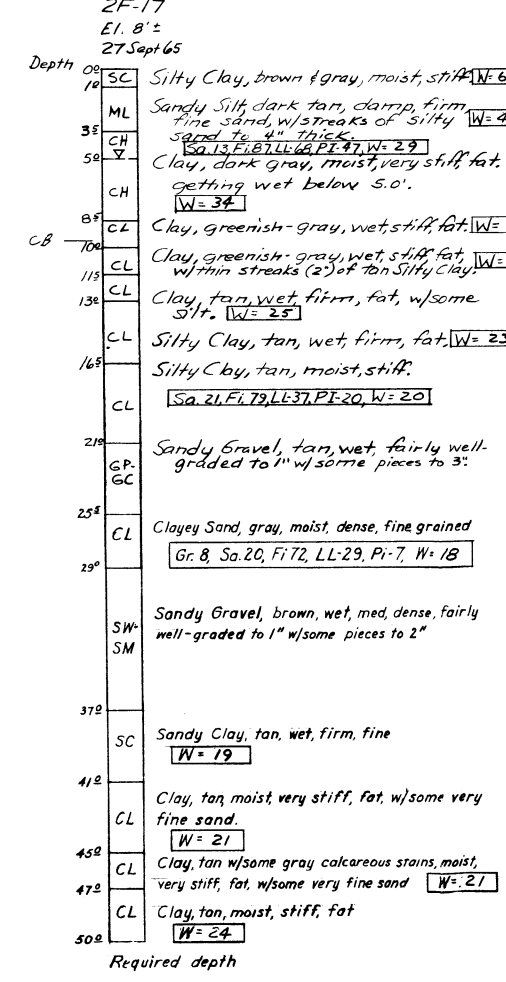 2F-17
El. 8'±
27 Sept 65
Depth
0º SC Silty Clay, brown & gray, moist, stiff. W=6
1º
ML Sandy Silt, dark tan, damp, firm,
fine sand, w/streaks of silty W=4
sand to 4" thick.
3⁵
CH Sa. 13, Fi. 87, LL-68, PI-47, W=29
5º Clay, dark gray, moist, very stiff, fat.
CH getting wet below 5.0'.
W=34
8⁵
CL Clay, greenish-gray, wet, stiff, fat. W=
CB 10º
CL Clay, greenish-gray, wet, stiff, fat, W=
w/thin streaks (2") of tan Silty Clay.
11⁵
CL
13º Clay, tan, wet, firm, fat, w/some
silt. W=25
CL Silty Clay, tan, wet, firm, fat. W=23
16⁵ Silty Clay, tan, moist, stiff.
CL Sa. 21, Fi. 79, LL-37, PI-20, W=20
21º Sandy Gravel, tan, wet, fairly well-
GP- graded to 1" w/some pieces to 3".
GC
25⁵
CL Clayey Sand, gray, moist, dense, fine grained
Gr. 8, Sa. 20, Fi 72, LL-29, Pi-7, W=18
29º
SW- Sandy Gravel, brown, wet, med, dense, fairly
SM well-graded to 1" w/some pieces to 2"
37º
SC Sandy Clay, tan, wet, firm, fine
W=19
41º
Clay, tan, moist, very stiff, fat, w/some very
CL fine sand.
W=21
45º
CL Clay, tan w/some gray calcareous stains, moist,
47º very stiff, fat, w/some very fine sand W=21
CL Clay, tan, moist, stiff, fat
W=24
50º
Required depth